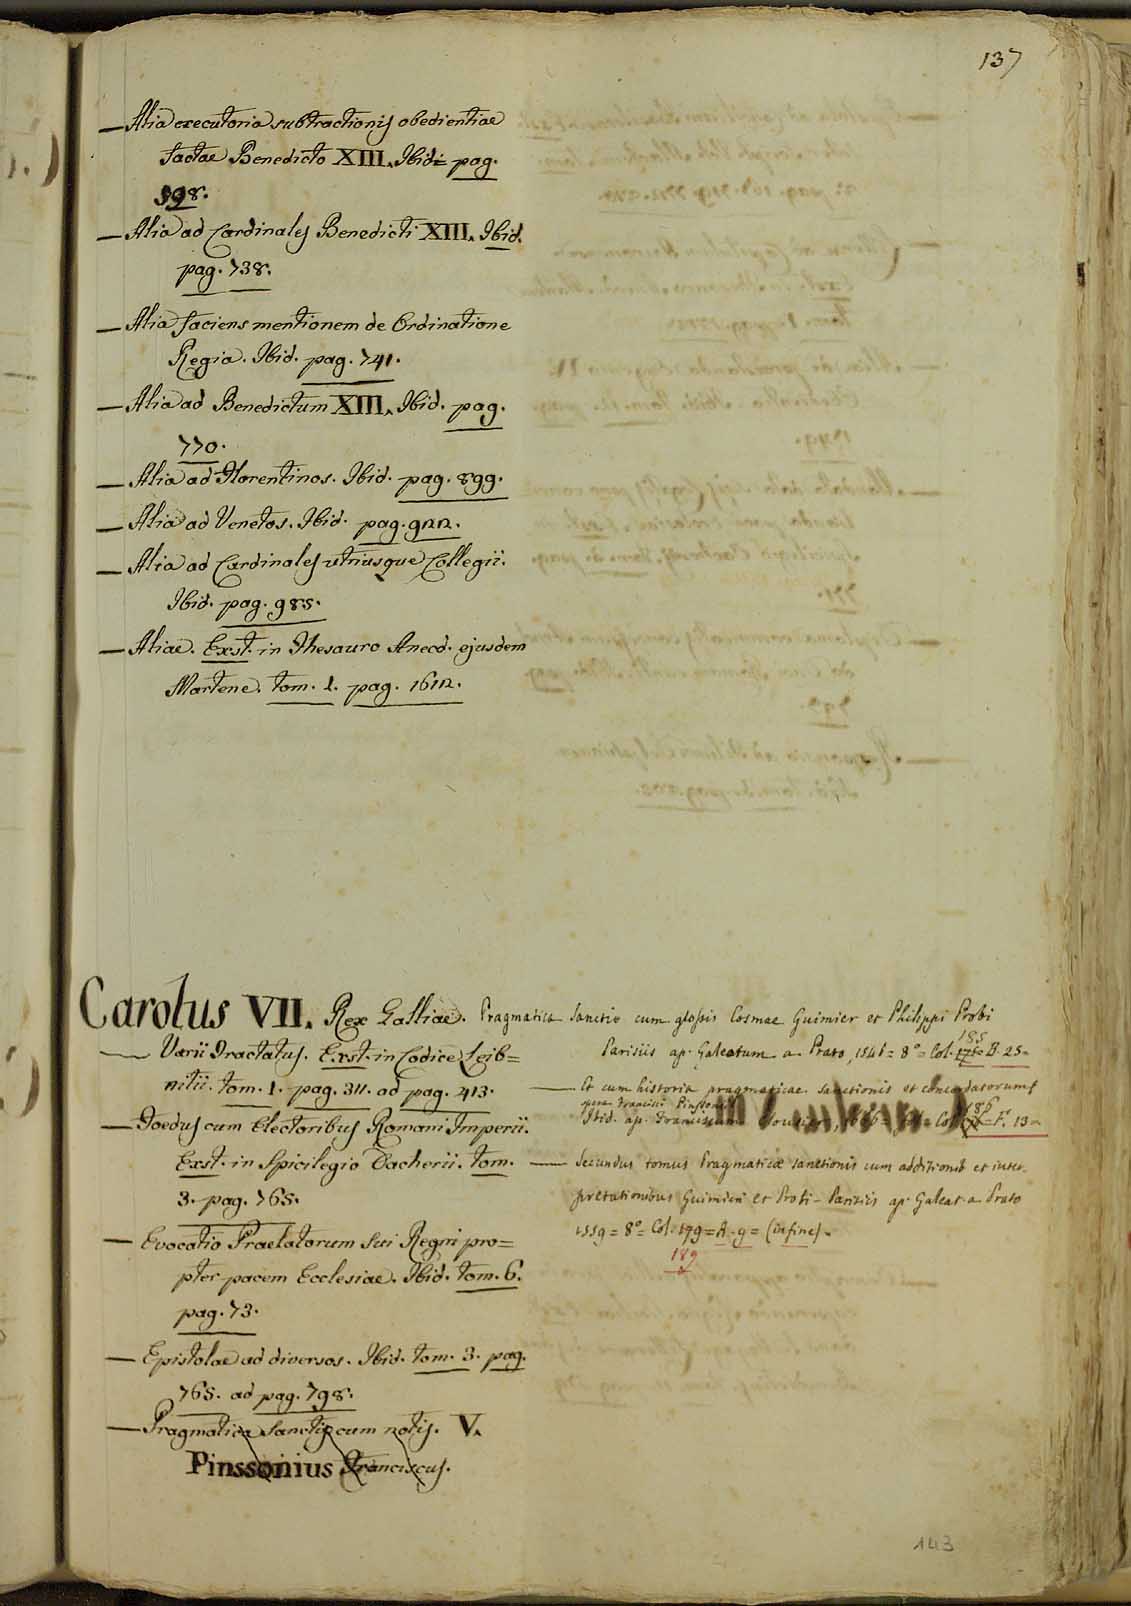 137
— Alia executoria subtractionis obedientiae
factae Benedicto XIII. Ibid= pag.
598.
— Alia ad Cardinales Benedicti XIII. Ibid.
pag. 738.
— Alia faciens mentionem de Ordinatione
Regia. Ibid. pag. 741.
— Alia ad Benedictum XIII. Ibid. pag.
770.
— Alia ad Florentinos. Ibid. pag. 899.
— Alia ad Venetos. Ibid. pag. 922.
— Alia ad Cardinales utriusque Collegii.
Ibid. pag. 985.
— Aliae. Exst. in Thesauro Anecd. ejusdem
Martene. tom. 1. pag. 1612.
Carolus VII. Rex Galliae.
— Varii Tractatus. Exst. in Codice Leib=
nitii. tom. 1. pag. 311. ad pag. 413.
— Foedus cum Electoribus Romani Imperii.
Exst. in Spicilegio Dacherii. tom.
3. pag. 765.
— Evocatio Praelatorum sui Regni pro=
pter pacem Ecclesiae. Ibid. tom. 6.
pag. 73.
— Epistolae ad diversos. Ibid. tom. 3. pag.
765. ad pag. 798.
— Pragmatica Sanctio cum notis. V.
Pinssonius Franciscus.
Pragmatica Sanctio cum glossis Cosmae Guimier et Philippi Probi
185
Parisiis ap. Galeatum a Prato, 1546 = 8° = Col. 176 = B. 25 =
— Et cum historia pragmaticae sanctionis et concordatorum
opera Francisci Pinssonii
186
Ibid. ap. Franciscum = F. 13 =
— Secundus tomus Pragmaticae sanctionis cum additionib et inter-
pretationibus Guimieri et Probi - Parisiis ap. Galeat. a Prato
1559 = 8° = Col. 179 = A. 9 = (in fine).
189
143